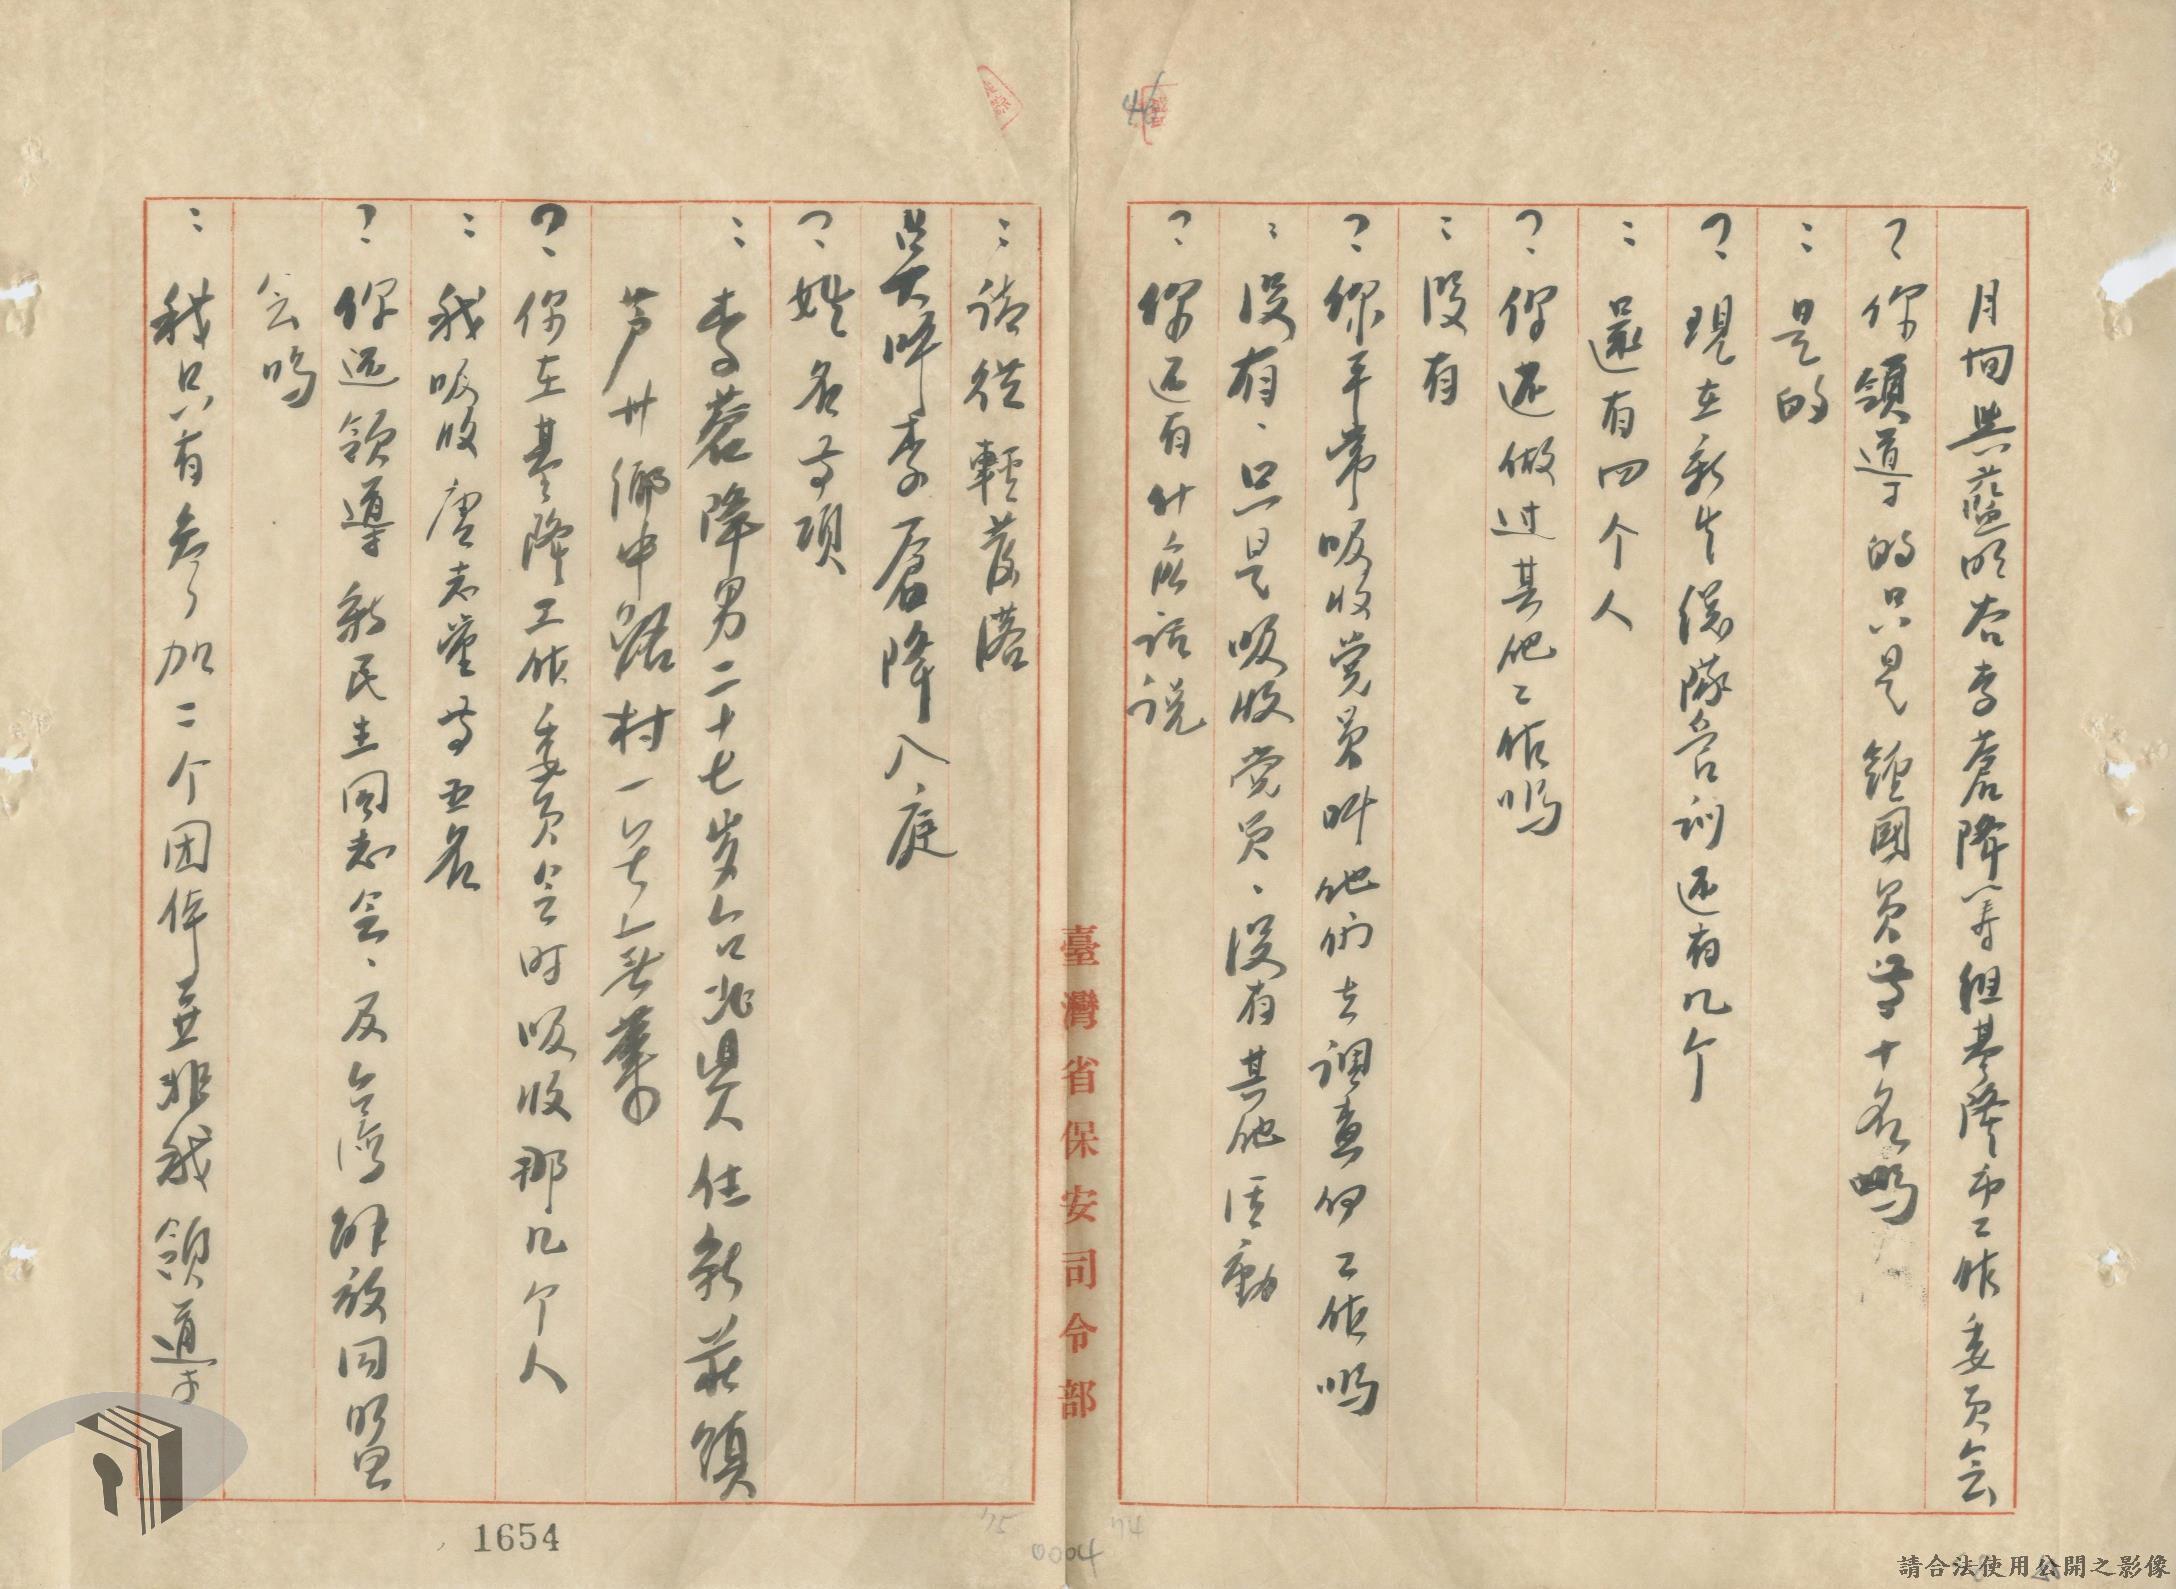 月間與藍明谷李蒼降等組基隆市工作委員会
？你領導的只是鍾國員等十名嗎
：是的
？現在新生總隊管訓还有几个
：還有四个人
？你还做过其他工作嗎
：没有
？你平常吸收党員叫他們去調查何工作嗎
：没有、只是吸收党员、没有其他活動
？你还有什么話説
：請從輕發落
点呼李蒼降入庭
？姓名等項
：李蒼降男二十七岁台北県人住新莊鎮
芦州鄉中路村一 号
？你在基隆工作委员会时吸收那几个人
：我吸收唐志堂等五名
？你还領導新民主同志会、反台湾解放同盟
会嗎
：我只有参加二个团体並非我領導
臺灣省保安司令部
1654
0004
74
75
請合法使用公開之影像